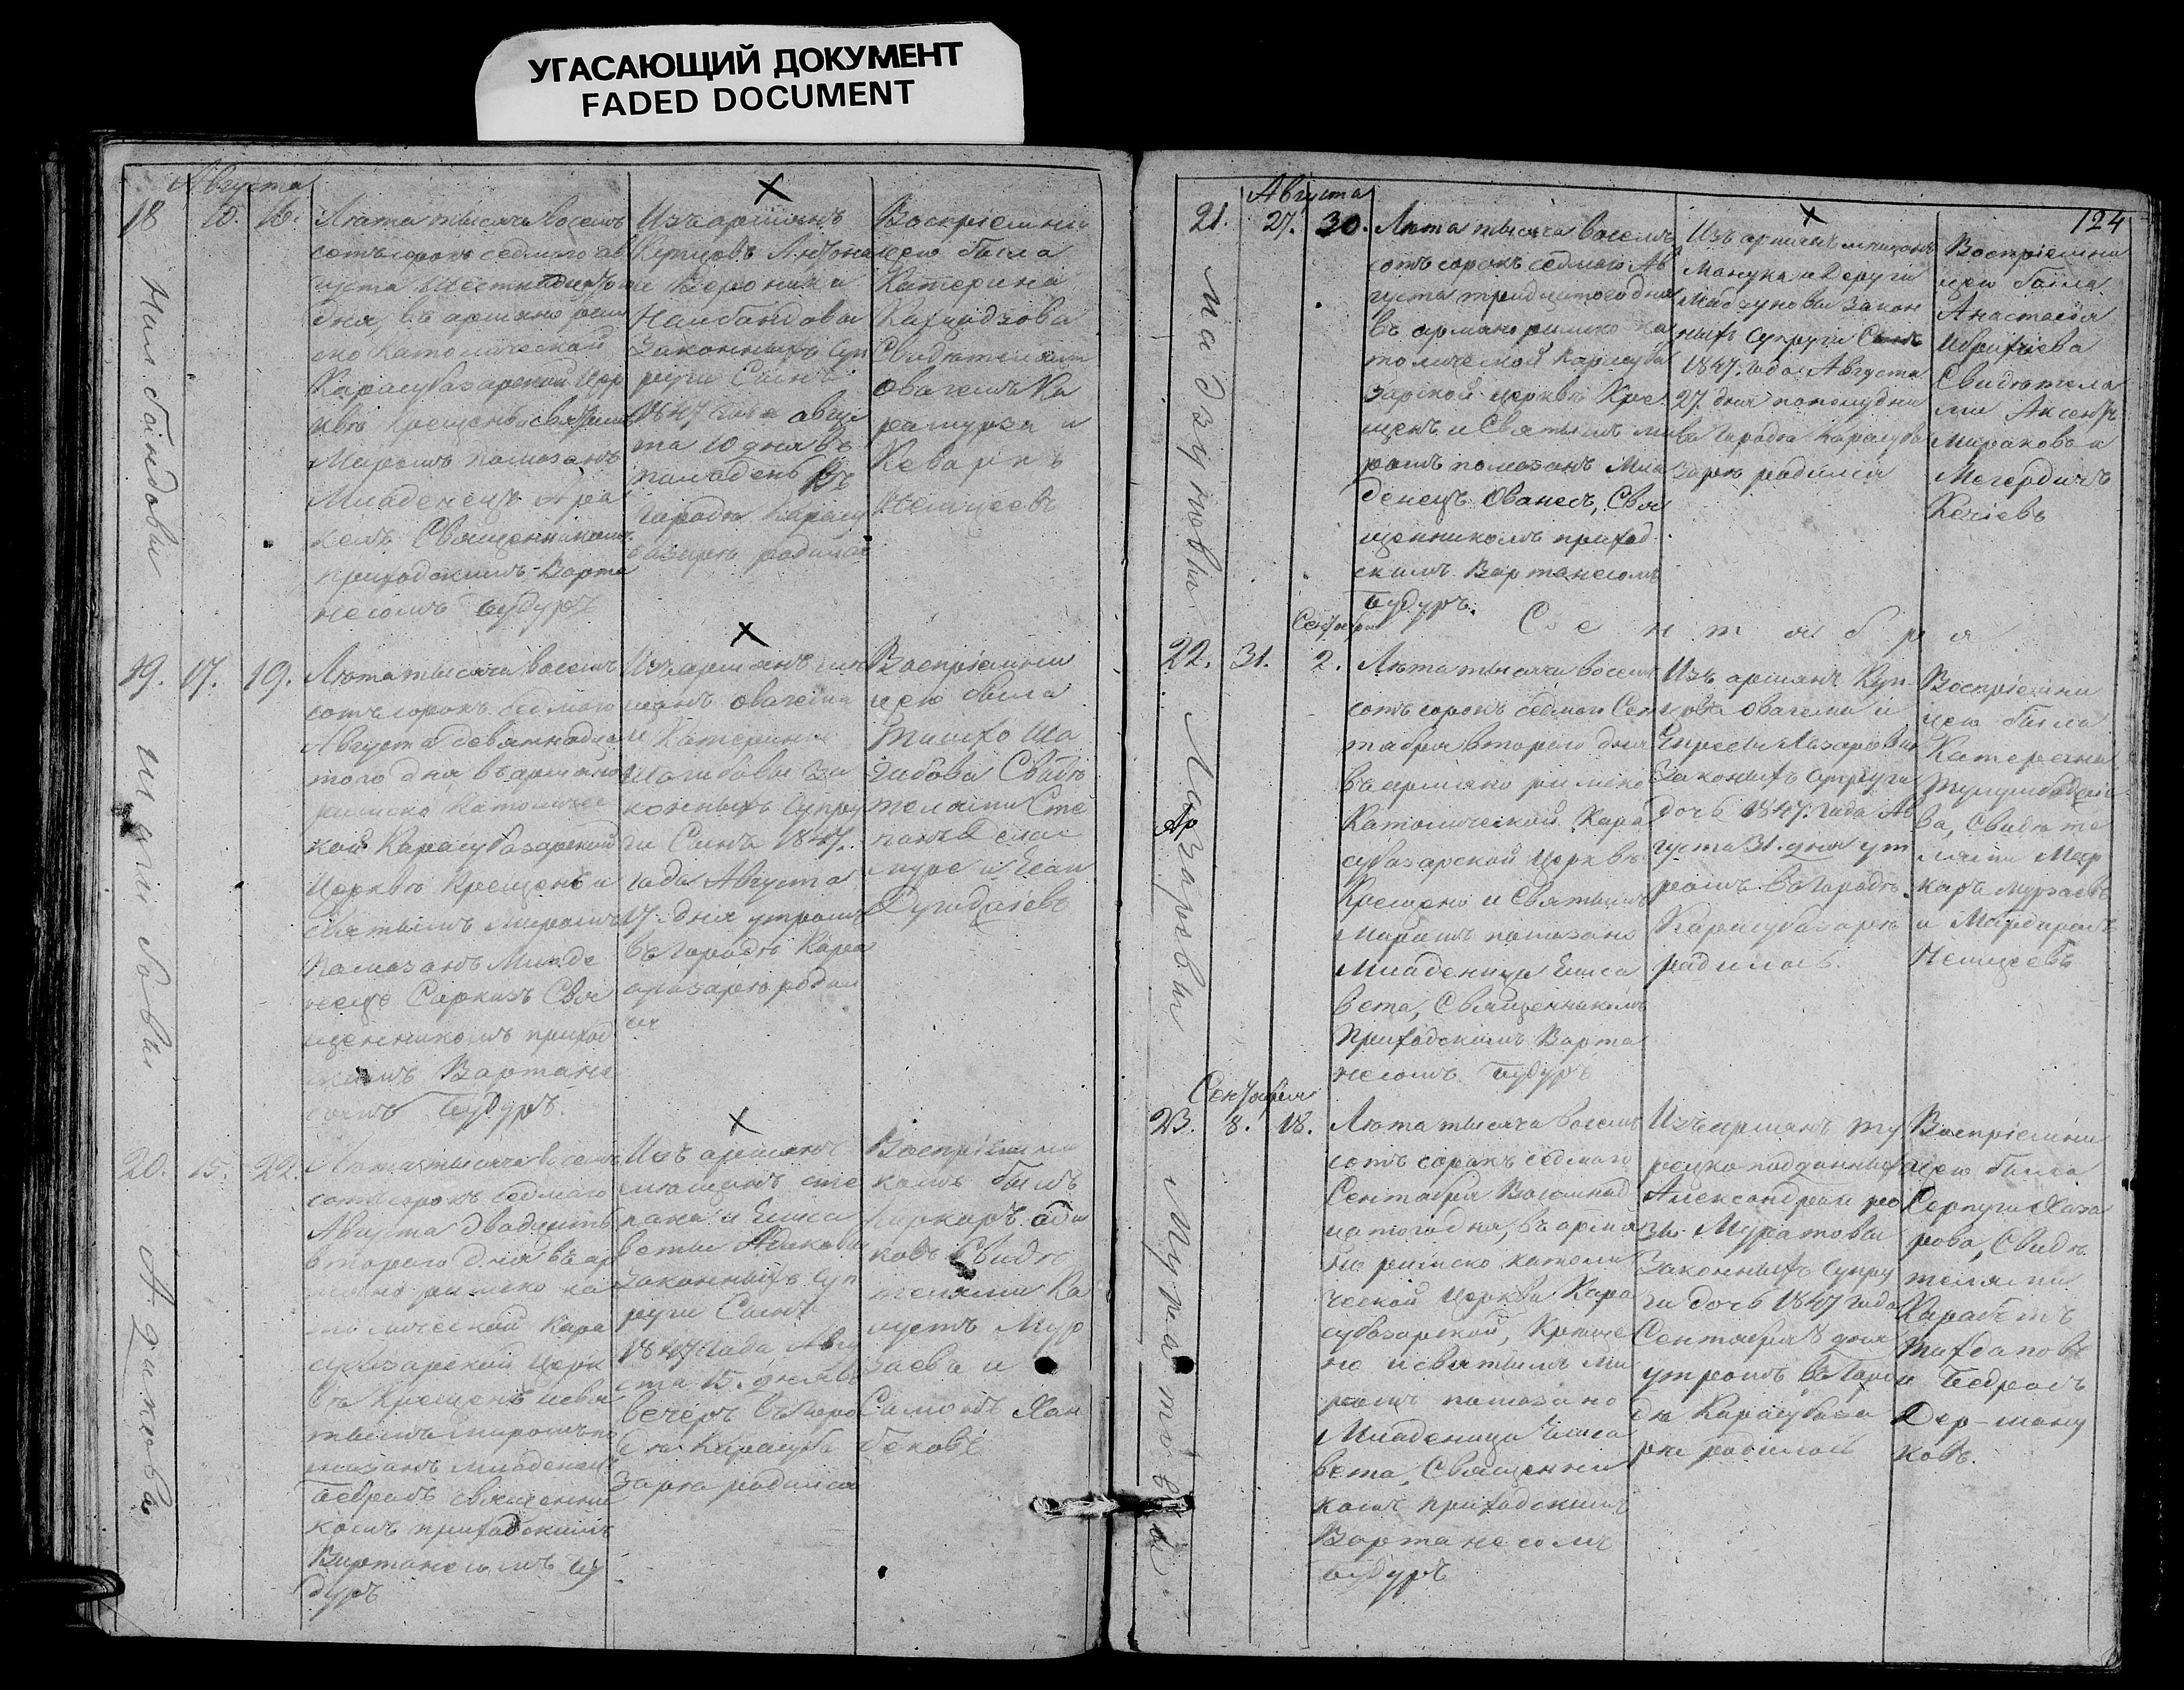 УГАСАЮЩИЙ ДОКУМЕНТ
FADED DOCUMENT
Августа
18 10. 16.
Лѣта тысяча восемь
сотъ сорокъ седмаго ав
густа шестнадцатаго
дня, въ армяно рим
ско католической
Карасубазарской цер
квѣ крещенъ и святымъ
миромъ помазанъ
младенецъ
Священникомъ
приходскимъ Варта
несомъ Будуръ
Изъ армянъ
Купцовъ Антона
и Вероники
Налбандовы
законныхъ суп
руги Сынъ
1847 года авгус
та 10 дня въ
полудень въ
городѣ Карасу
базарѣ родился
Воспріемни
цею была
Катерина
Свидѣтелями
Овагемъ Ка
рамурза и
Кеваркъ
Немцеевъ
Налбандовы
19. 17. 19.
Лѣта тысяча восемь
сотъ сорокъ седмаго
Августа девятнадца
таго дня въ армяно
римско католичес
кой Карасубазарской
Церквѣ Крещенъ и
святымъ миромъ
помазанъ младе
нецъ Саркизъ Свя
щенникомъ приход
скимъ Вартане
сомъ Будуръ.
Изъ армянъ мѣ
щанъ Овагема
и Катерины
Шагибовы за
конныхъ супру
ги Сынъ 1847.
года Августа
17. дня утромъ
въ городѣ Кара
субазарѣ родил
ся
Воспріемни
цею была
Ша
гибова Свидѣ
телями Сте
панъ
и
Шагибовы
20. 15. 22.
Лѣта тысяча восемь
сотъ сорокъ седмаго
Августа двадцать
втораго дня въ ар
мяно римско ка
толической Кара
субазарской церк
вѣ крещенъ и свя
тымъ миромъ по
мазанъ младенецъ
Бедросъ священни
комъ приходскимъ
Вартанесомъ Бу
дуръ
Изъ армянъ
мѣщанъ Сте
пана и Елиса
веты Адиковы
законныхъ суп
руги Сынъ
1847 года Авгу
ста 15. дня въ
вечеръ въ горо
дѣ Карасуба
зарѣ родился
Воспріемни
комъ былъ
Киркоръ Ади
ковъ Свидѣ
телями Ка
лустъ Мур
заевъ и
Симонъ Хан
бековъ
Адиковы
124
Августа
21. 27. 30.
Лѣта тысяча восемь
сотъ сорокъ седмаго Ав
густа тридцатого дня
въ армяно римско ка
толической Карасуба
зарской церквѣ Кре
щенъ и Святымъ ми
ромъ помазанъ Мла
денецъ Ованесъ, Свя
щенникомъ приход
скимъ Вартанесомъ
Будуръ.
Изъ армянъ мѣщанъ
Манука и Серуги
Мадзуновы закон
ныхъ супруги Сынъ
1847. года Августа
27. дня пополудни
въ Городѣ Карасуба
зарѣ родился
Воспріемни
цею была
Анастасія
Свидѣтеля
ми Аксентъ
Мираковъ и
Мегердичъ
Кечіевъ
Мадзуновы
Сентября
Сентября
22. 31. 2.
Лѣта тысяча восемь
сотъ сорокъ седмаго Сен
тября втораго дня
въ армяно римско
Католической Кара
субазарской Церквѣ
Крещено и Святымъ
миромъ помазано
Младеница Елиса
вета, Священникомъ
Приходскимъ Варта
несомъ Будуръ
Изъ армянъ Куп
цовъ Овагема и
Лазаровы
законныхъ супруги
дочь 1847. года Ав
густа 31. дня ут
ромъ въ городѣ
Карасубазарѣ
родилась.
Воспріемни
цею была
Катерина
ва, Свидѣте
лями Мар
каръ Мурзаевъ
и Мардиросъ
Немцеевъ
Лазаровы
Сентября
23. 8. 18.
Лѣта тысяча восемь
сотъ сорокъ седмаго
Сентября Восемнад
цатого дня, въ армя
но римско католи
ческой Церкви Кара
субазарской, Креще
но и святымъ ми
ромъ помазано
Младеница Елиса
вета, Священни
комъ приходскимъ
Вартанесомъ
Будуръ
Изъ армянъ ту
рецко подданныхъ
Александра и Ро
зы Муратовы
Законныхъ супру
ги дочь 1847 года
Сентября 8 дня
утромъ въ Горо
дѣ Карасубаза
рѣ родилась
Воспріемни
цею была
Серпуги Хаза
рова, Свидѣ
телями
Карабетъ
и Бедросъ
Дер-Ману
ковъ.
Муратовы.